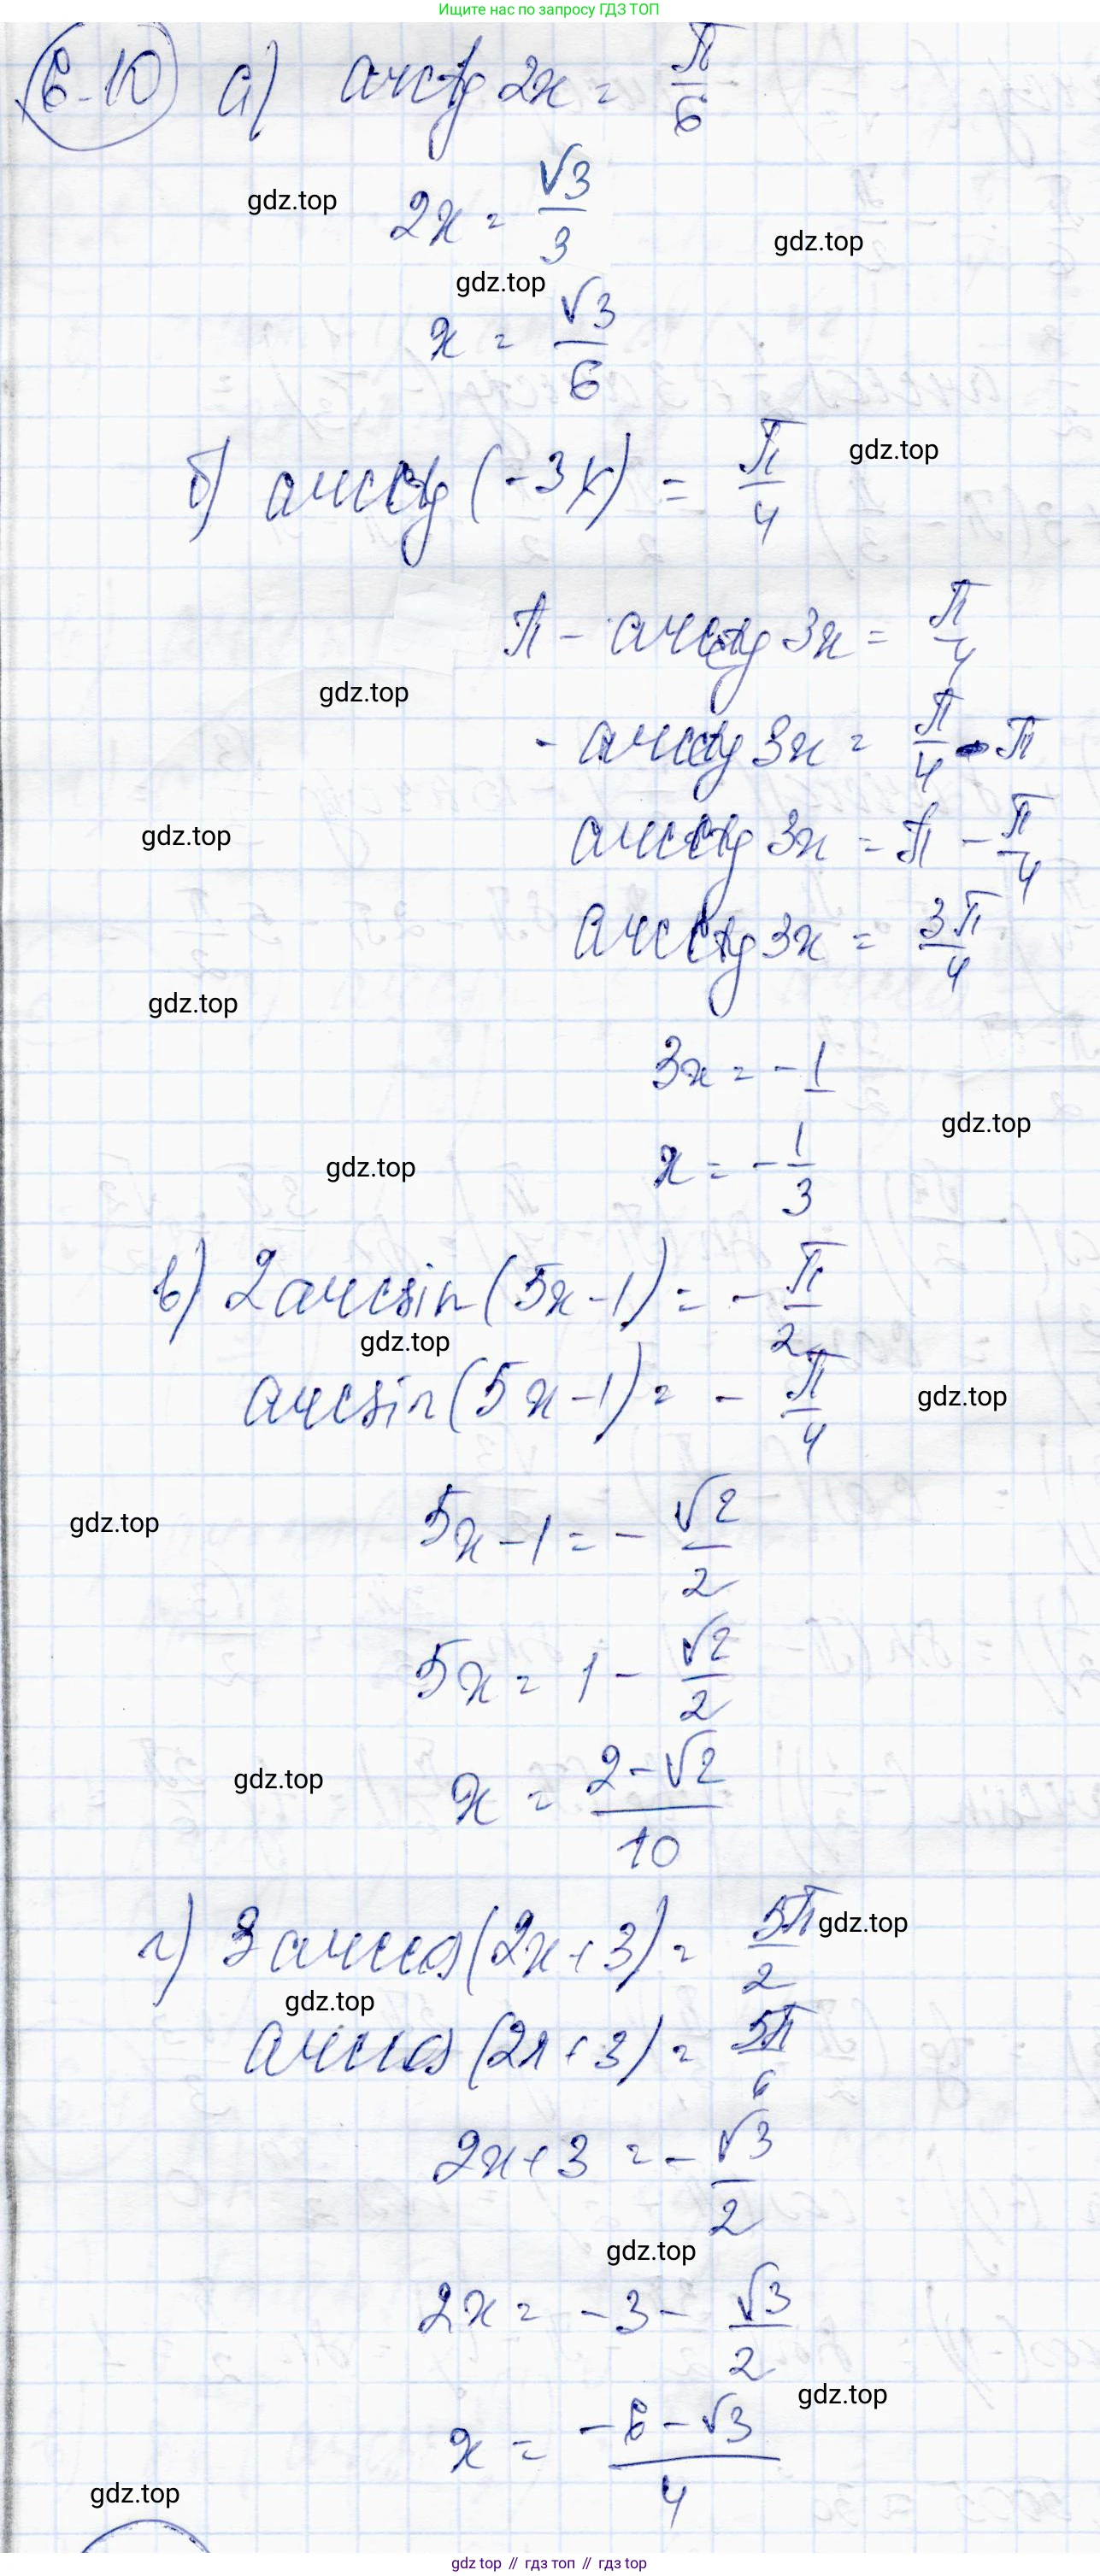 Ищите нас по запросу ГДЗ ТОП
6.10 а) arctg 2x = π/6
gdz.top
2x = √3/3
gdz.top
gdz.top
x = √3/6
б) arcctg (-3x) = π/4
gdz.top
π - arcctg 3x = π/4
gdz.top
- arcctg 3x = π/4 - π
gdz.top
arcctg 3x = π - π/4
arcctg 3x = 3π/4
gdz.top
3x = -1
gdz.top
gdz.top
x = -1/3
в) 2 arcsin (5x - 1) = - π/2
gdz.top
arcsin (5x - 1) = - π/4
gdz.top
gdz.top
5x - 1 = - √2/2
5x = 1 - √2/2
gdz.top
x = (2 - √2)/10
г) 3 arccos (2x + 3) = 5π/2
gdz.top
gdz.top
arccos (2x + 3) = 5π/6
2x + 3 = - √3/2
gdz.top
2x = -3 - √3/2
gdz.top
x = (-6 - √3)/4
gdz.top
gdz top // гдз топ // gdz top